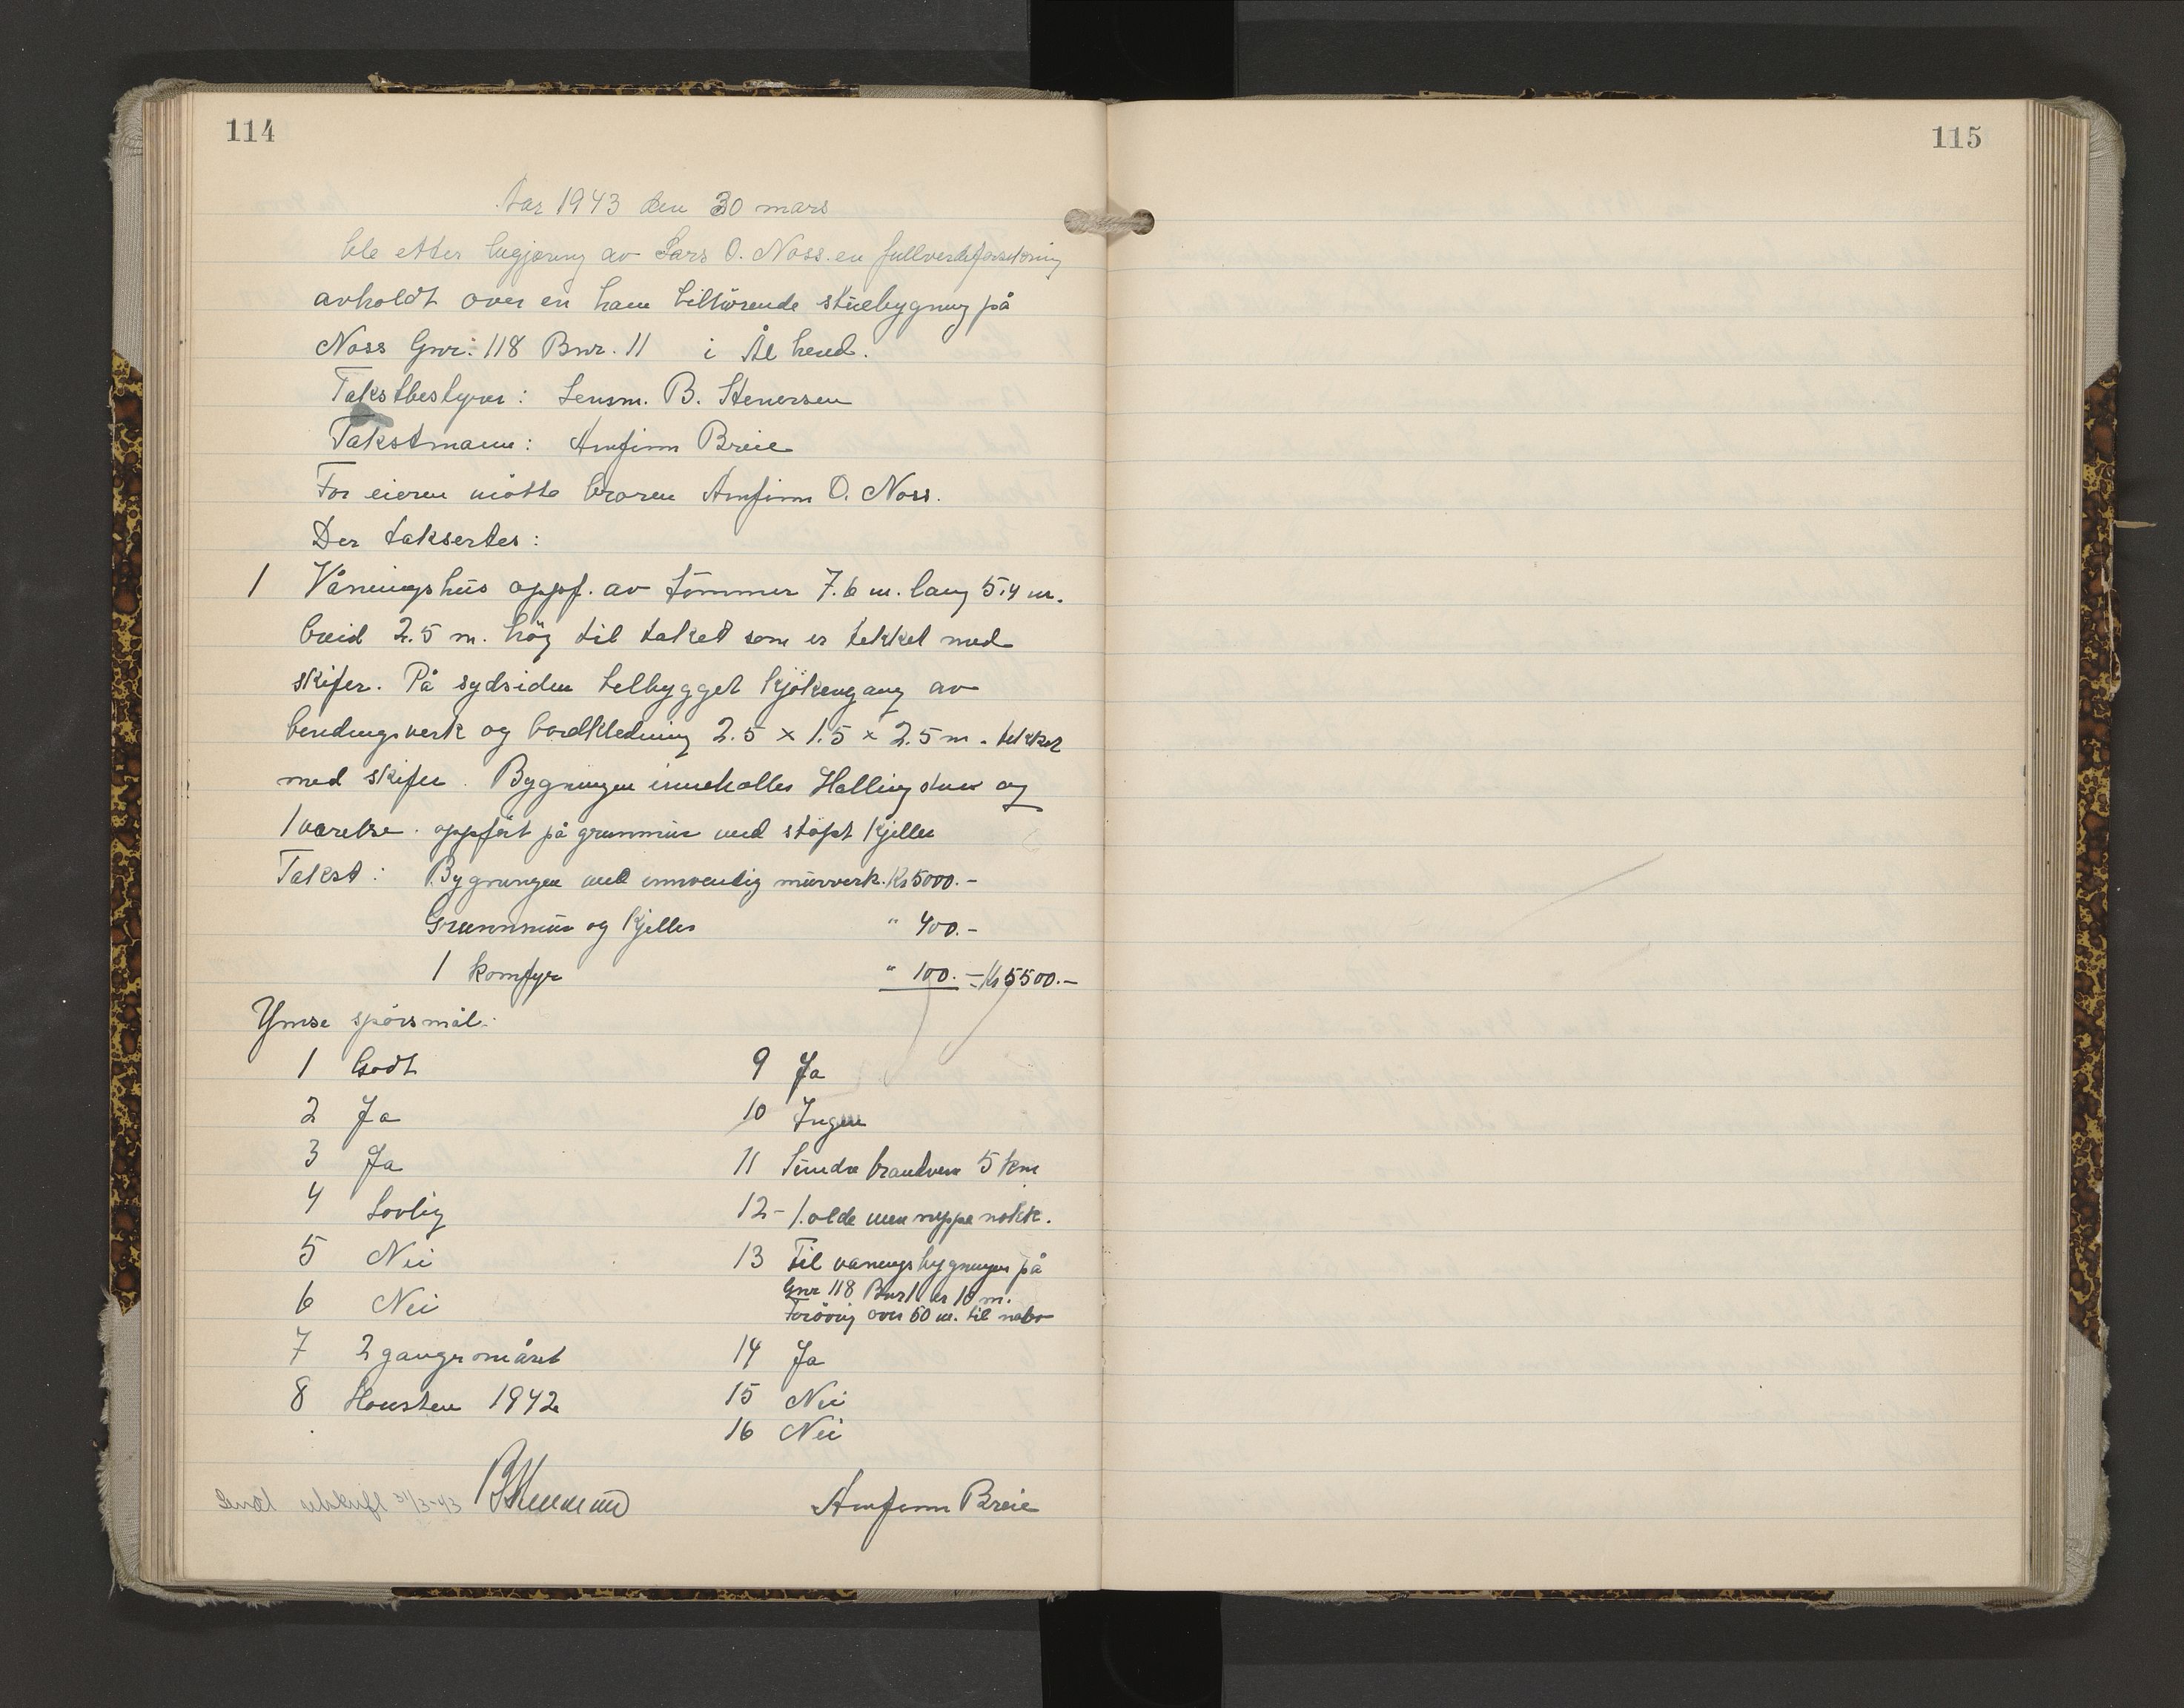 114
Aar 1943 den 30 mars
ble etter begjæring av Lars O. Noss. en fullverdiforsikring
avholdt over en ham tilhörende stuebygning på
Noss Gnr: 118 Bnr. 11 i Ål herred.
Takstbestyrer: Lensm. B. Stenersen
Takstmann: Arnfinn Breie
For eieren møtte broren Arnfinn O. Noss.
Der taksertes:
1 Våningshus oppf. av tömmer 7.6 m. lang 5.4 m.
breid 2.5 m. hög til taket som er tekket med
skifer. På sydsiden tilbygget kjökengang av
bindingsverk og bordkledning 2.5 x 1.5 x 2.5 m. tekket
med skifer. Bygningen inneholder Hallingstue og
1 værelse. oppfört på grunnmur med stöpt kjeller
Takst: Bygningen med innvendig murverk. Kr 5000.-
Grunnmur og kjeller " 400.-
1 komfyr " 100.- = Kr 5500.-
Ymse spörsmål:
1 Godt
2 Ja
3 Ja
4 Lovlig
5 Nei
6 Nei
7 2 ganger om året
8 Hausten 1942
9 Ja
10 Ingen
11 Sundre brandvern 5 km
12 - 1. olde men neppe nokk.
13 Til vaningsbygningen på
Gnr 118 Bnr 1 er 10 m.
Forövrig over 60 m. til nabo
14 Ja
15 Nei
16 Nei
Sendt utskrift 31/3-43 B Stenersen
Arnfinn Breie
115